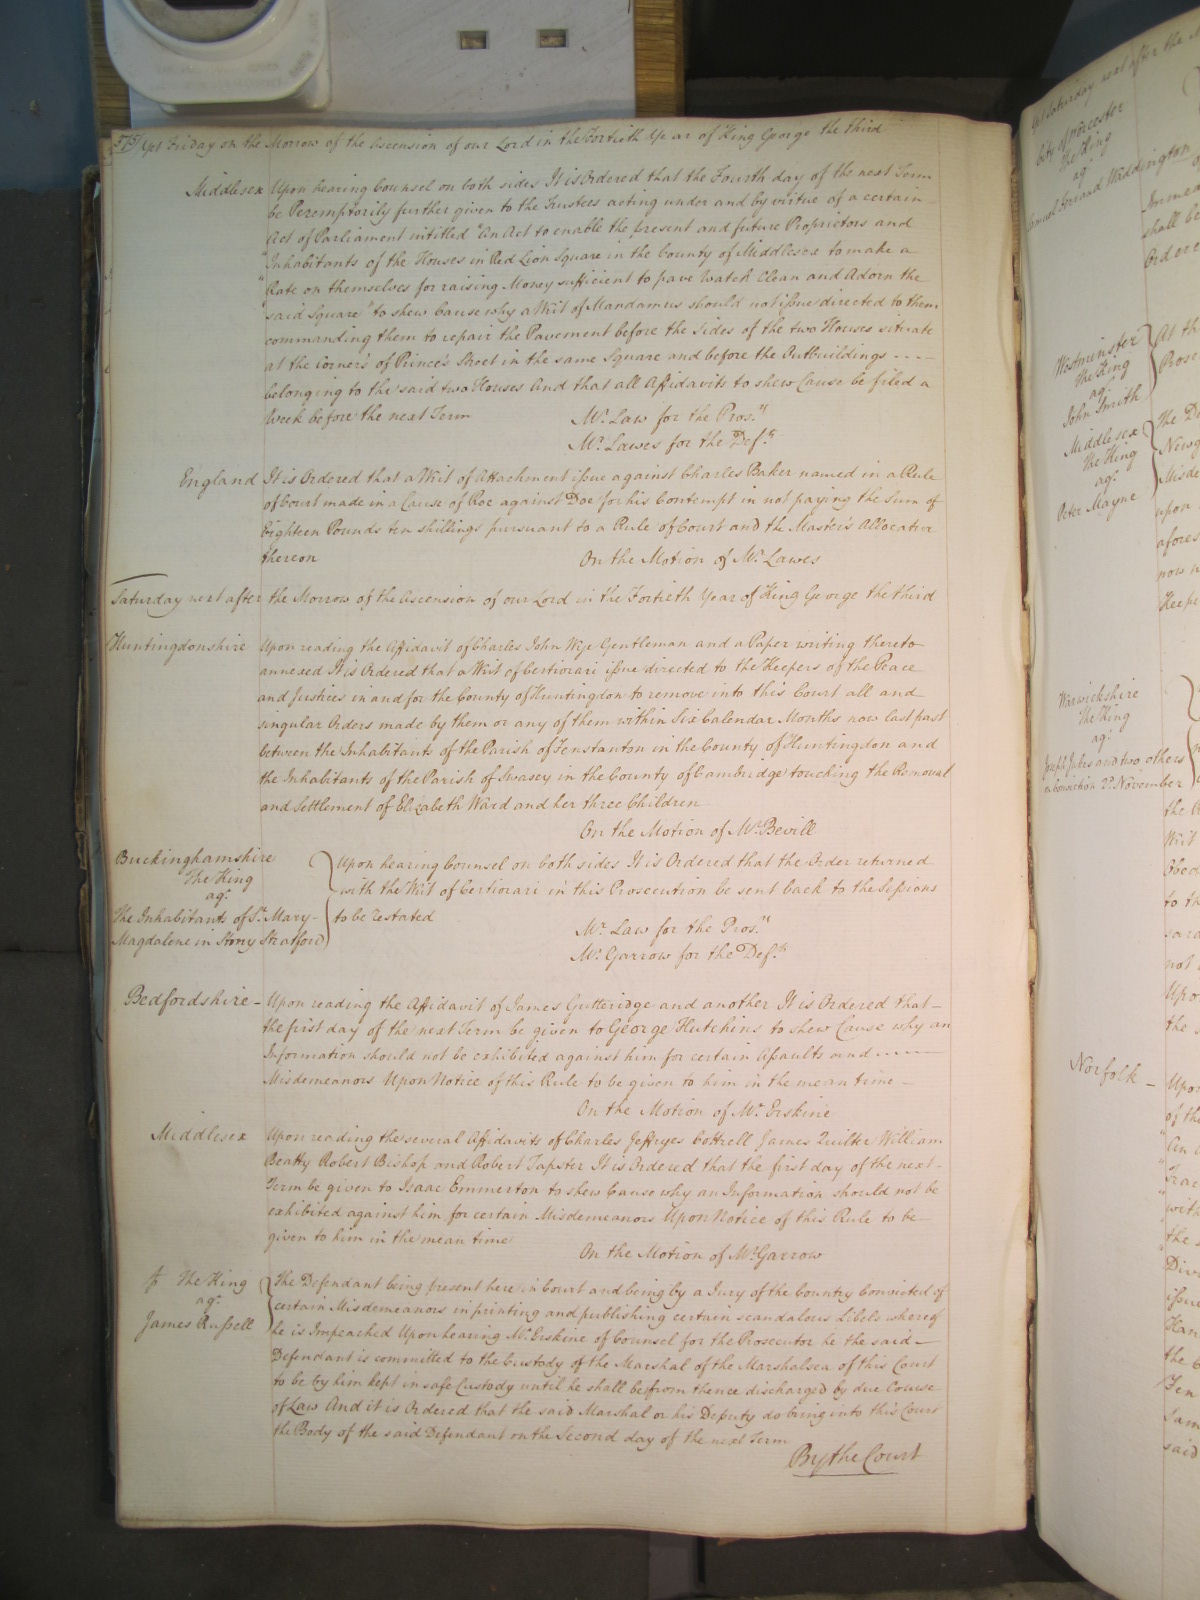 575/ Yet Friday on the Morrow of the Ascension of our Lord in the Fortieth Year of King George the third
Middlesex Upon hearing Counsel on both sides It is Ordered that the Fourth day of the next Term
be Peremptorily further given to the Trustees acting under and by virtue of a certain
Act of Parliament intitled "An Act to enable the present and future Proprietors and
"Inhabitants of the Houses in Red Lion Square in the County of Middlesex to make a
"Rate on themselves for raising Money sufficient to pave Watch Clean and Adorn the
"said Square" to shew Cause why a Writ of Mandamus should not issue directed to them
commanding them to repair the Pavement before the sides of the two Houses situate
at the Corners of Prince's Street in the same Square and before the Outbuildings ----
belonging to the said two Houses And that all Affidavits to shew Cause be filed a
Week before the next Term
Mr. Law for the Pros.rs
Mr. Lawes for the Def.ts
England It is Ordered that a Writ of Attachment issue against Charles Baker named in a Rule
of Court made in a Cause of Roe against Doe for his Contempt in not paying the Sum of
Eighteen Pounds ten shillings pursuant to a Rule of Court and the Master's Allocatur
thereon
On the Motion of Mr. Lawes
Saturday next after the Morrow of the Ascension of our Lord in the Fortieth Year of King George the third
Huntingdonshire Upon reading the Affidavit of Charles John Wye Gentleman and a Paper writing thereto
annexed It is Ordered that a Writ of Certiorari issue directed to the Keepers of the Peace
and Justices in and for the County of Huntingdon to remove into this Court all and
singular Orders made by them or any of them within Six Calendar Months now last past
between the Inhabitants of the Parish of Fenstanton in the County of Huntingdon and
the Inhabitants of the Parish of Swasey in the County of Cambridge touching the Removal
and Settlement of Elizabeth Ward and her three Children
On the Motion of Mr. Bevill
Buckinghamshire
The King
ag.t
The Inhabitants of St. Mary-
Magdalene in Stony Stratford
Upon hearing Counsel on both sides It is Ordered that the Order returned
with the Writ of Certiorari in this Prosecution be sent back to the Sessions
to be restated
Mr. Law for the Pros.rs
Mr. Garrow for the Def.ts
Bedfordshire- Upon reading the Affidavit of James Gutteridge and another It is Ordered that-
the first day of the next Term be given to George Hutchins to shew Cause why an
Information should not be exhibited against him for certain Assaults and ----
Misdemeanors Upon Notice of this Rule to be given to him in the mean time -
On the Motion of Mr. Erskine
Middlesex Upon reading the several Affidavits of Charles Jeffryes Cottrell James Quilter William
Beatty Robert Bishop and Robert Tapster It is Ordered that the first day of the next-
Term be given to Isaac Emmerton to shew Cause why an Information should not be
exhibited against him for certain Misdemeanors Upon Notice of this Rule to be
given to him in the mean time
On the Motion of Mr. Garrow
The King
ag.t
James Russell
The Defendant being present here in Court and being by a Jury of the Country Convicted of
certain Misdemeanors in printing and publishing certain scandalous Libels whereof
he is Impeached Upon hearing Mr. Erskine of Counsel for the Prosecutor he the said-
Defendant is committed to the Custody of the Marshal of the Marshalsea of this Court
to be by him kept in safe Custody until he shall be from thence discharged by due Course
of Law And it is Ordered that the said Marshal or his Deputy do bring into this Court
the Body of the said Defendant on the Second day of the next Term
By the Court
Yet Saturday next after the
City of Worcester
The King
ag.t
Samuel Ferrand Waddington
shall be
Ordere
Westminster
The King
ag.t
John Smith
At th
Prose
Middlesex
The King
ag.t
Peter Mayne
The De
Newg
Misde
upon
afores
now
Keepe
Warwickshire
The King
ag.t
and two others
November
the
Writ
Obed
to th
not
Upo
the
Norfolk -
Upon
of the
with
the
Divi
issue
the
said